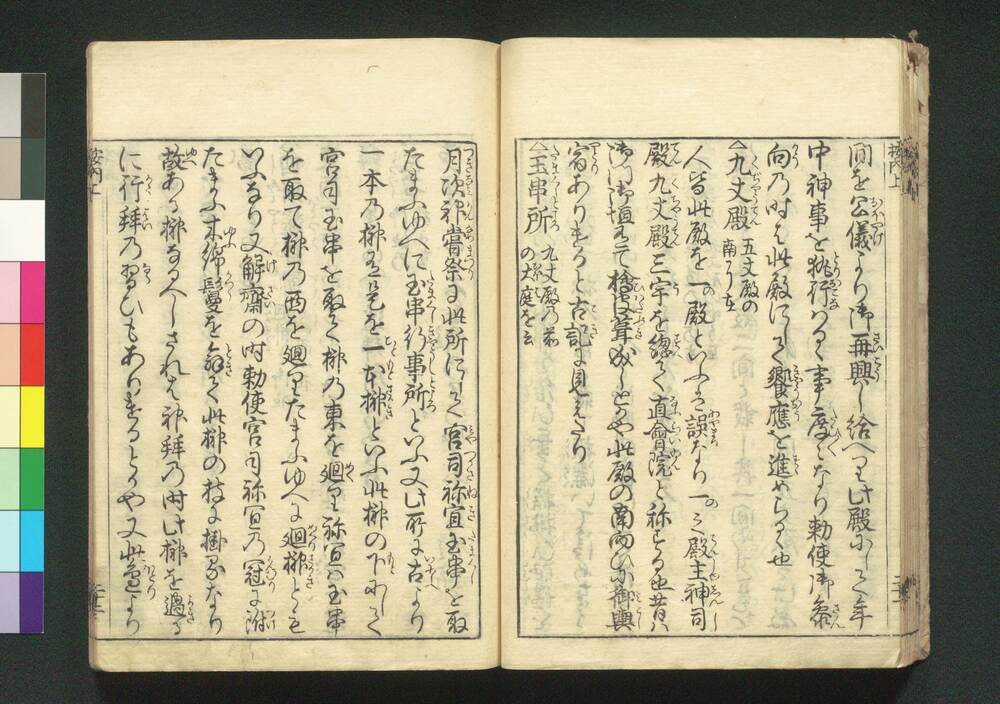 間を公儀より御再興し給へり此殿にして年
中神事を執行はるゝ事度々なり勅使御参
向の時も此殿にして饗應を進めらるゝ也
△九丈殿 五丈殿の南にり
人皆此殿を一の殿といふは誤なり一の殿主神司
殿九丈殿三宇を總て直會院と称する也昔は
御門御垣有て檜皮葺成しとかや此殿の南に御輿
宿ありけると古記に見えたり
△玉串所 九丈殿の前の大庭を云
月次神嘗祭に此所にて宮司祢宜玉串を取
たまふゆへに玉串行事所といふ又此所に古より
一本の榊有是を一本榊といふ此榊の下にて
宮司玉串を取て榊の東を廻り祢宜は玉串
を取て榊の西を廻りたまふゆへに廻榊とも
いふなり又解齋の時勅使宮司祢宜の冠に附
たまふ木綿鬘を解て此榊の枝に掛るなり
故ある榊なるべしされば神拜の時此榊を過る
に行拜の習ひもありけるとかや又此邉より